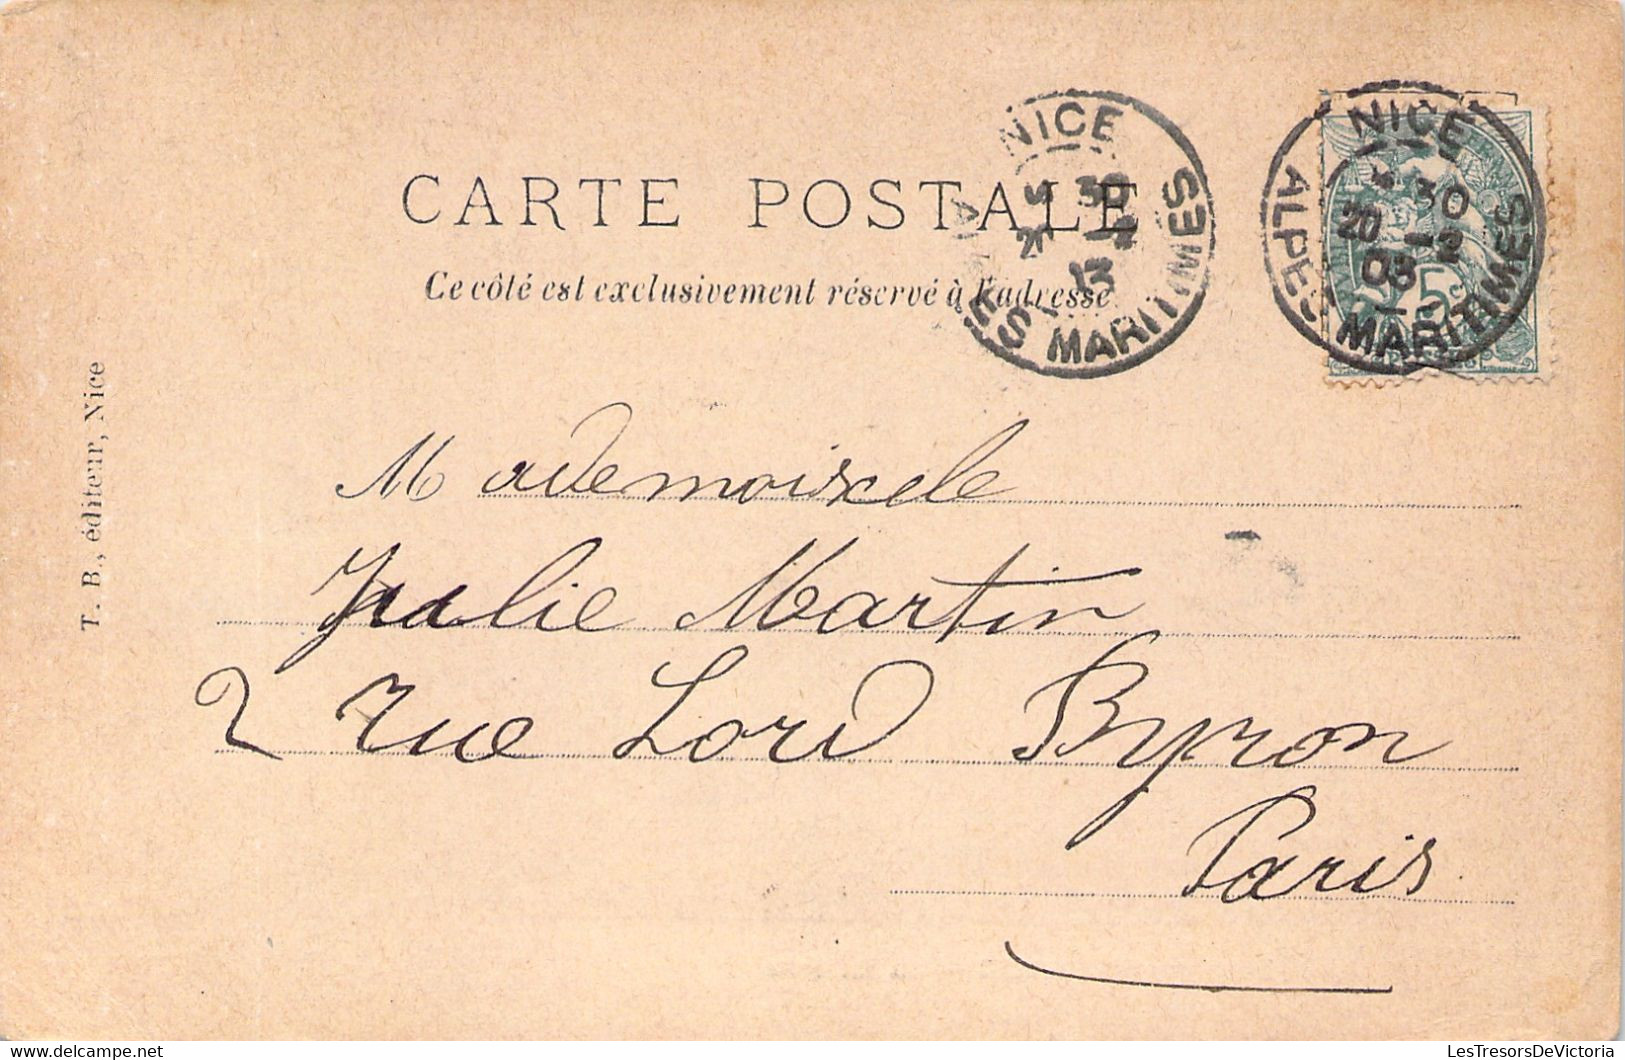 CARTE POSTALE
Ce côté est exclusivement réservé à l'adresse
NICE
ALPES MARITIMES
NICE
30
20 -2
03
ALPES MARITIMES
5c
T. B., éditeur, Nice
Mademoiselle
Julie Martin
2 rue Lord Byron
Paris
LesTresorsDeVictoria
www.delcampe.net